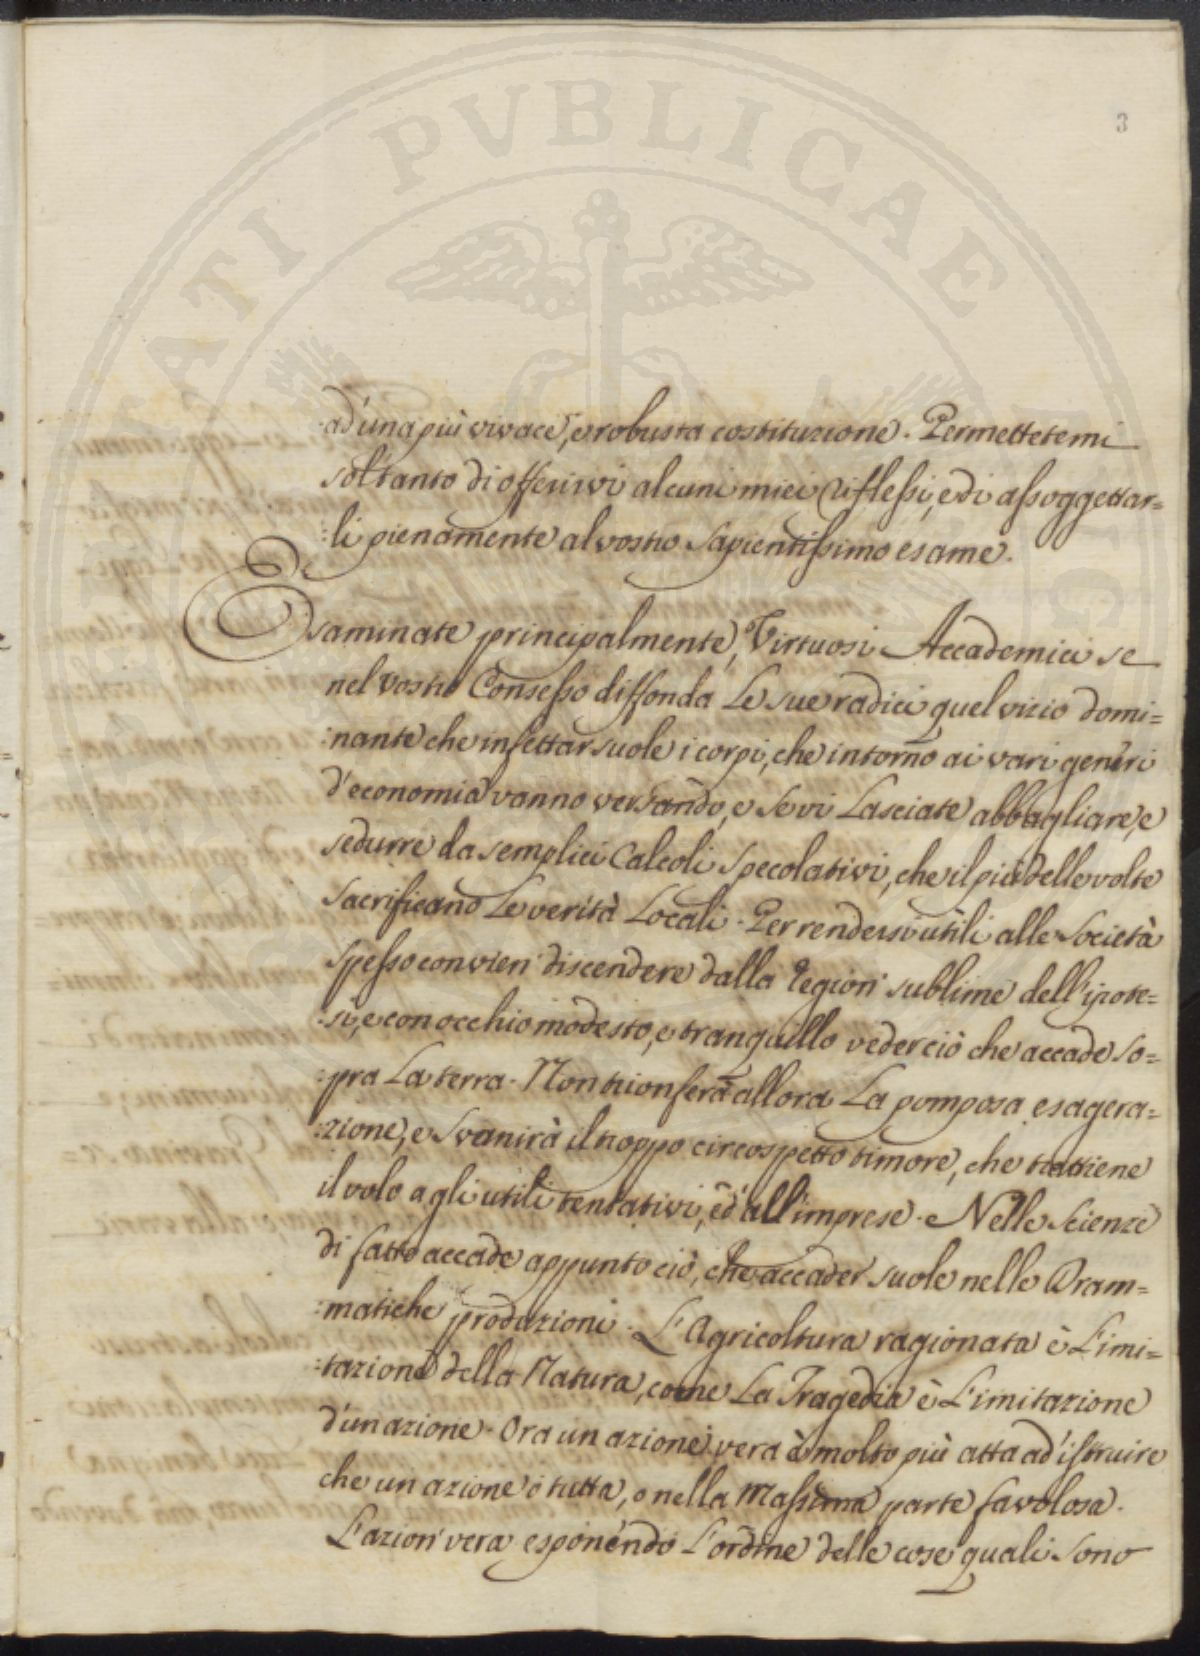 3
ad'una più vivace, e robusta costituzione. Permettetemi
soltanto di offerirvi alcuni miei riflessi, e di assoggettar=
:li pienamente al vostro sapientissimo esame.
Esaminate principalmente, Virtuosi Accademici se
nel vostro Consesso diffonda le sue radici quel vizio domi=
:nante che infettar suole i corpi, che intorno ai vari generi
d'economia vanno versando, e se vi lasciate abbagliare, e
sedurre da semplici Calcoli specolativi, che il più delle volte
sacrificano le verità locali. Per rendersi utili alle Società
spesso convien discendere dalla region sublime dell'ipote=
:si, e con occhio modesto, e tranquillo veder ciò che accade so=
:pra la terra. Non trionferà allora la pomposa esagera=
:zione, e svanirà il troppo circospetto timore, che trattiene
il volo agli utili tentativi, ed all'imprese. Nelle scienze
di fatto accade appunto ciò, che accader suole nelle Dram=
:matiche produzioni. L'Agricoltura ragionata è l'imi=
:tazione della Natura, come la Tragedia è l'imitazione
d'un azione. Ora un azione vera è molto più atta ad'istruire
che un azione o tutta, o nella massima parte favolosa.
L'azion vera esponendo l'ordine delle cose quali sono
PVBLICAE